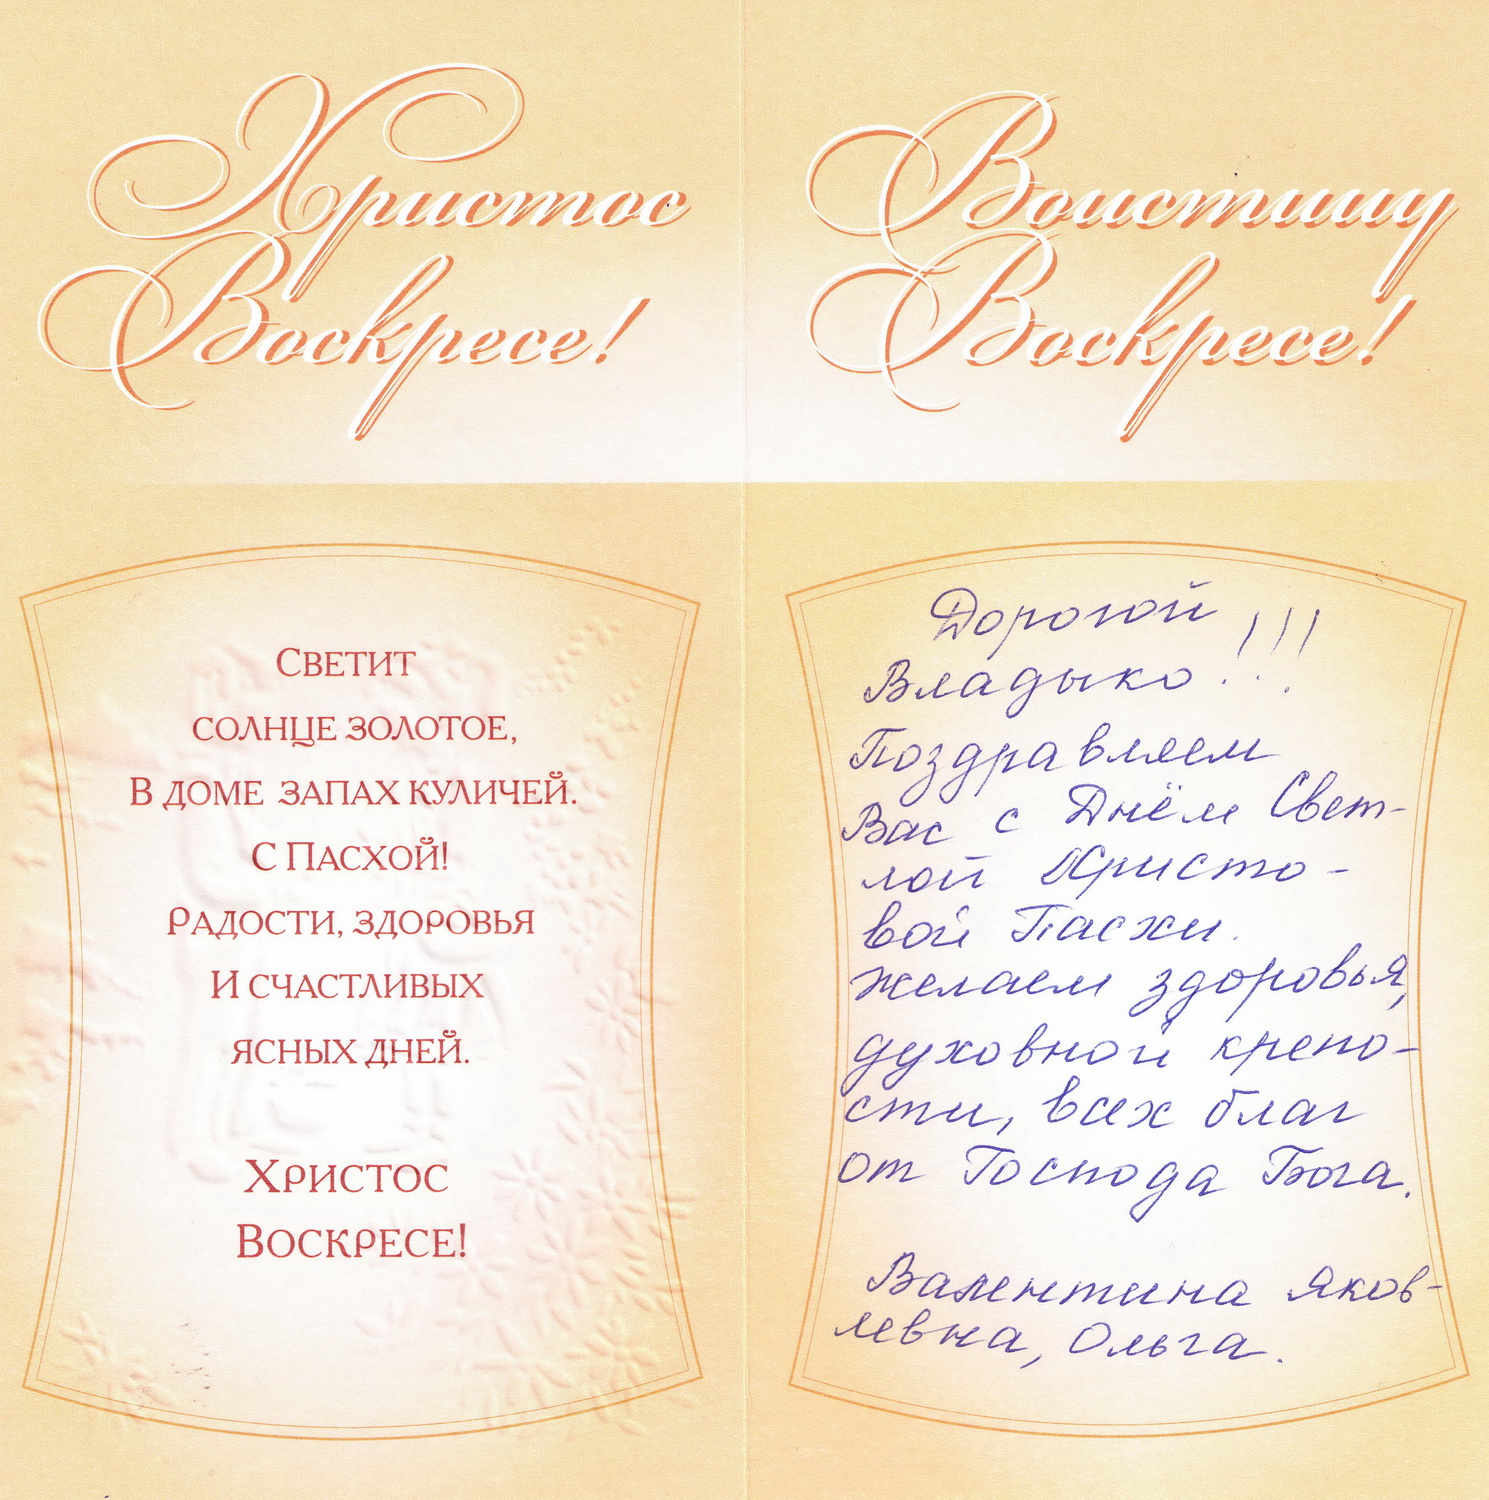 Христос
Воскресе!
Светит
солнце золотое,
В доме запах куличей.
С Пасхой!
Радости, здоровья
И счастливых
ясных дней.
Христос
Воскресе!
Воистину
Воскресе!
Дорогой
Владыко!!!
Поздравляем
Вас с Днём Свет-
лой Христо-
вой Пасхи.
желаем здоровья,
духовной крепо-
сти, всех благ
от Господа Бога.
Валентина Яков-
левна, Ольга.